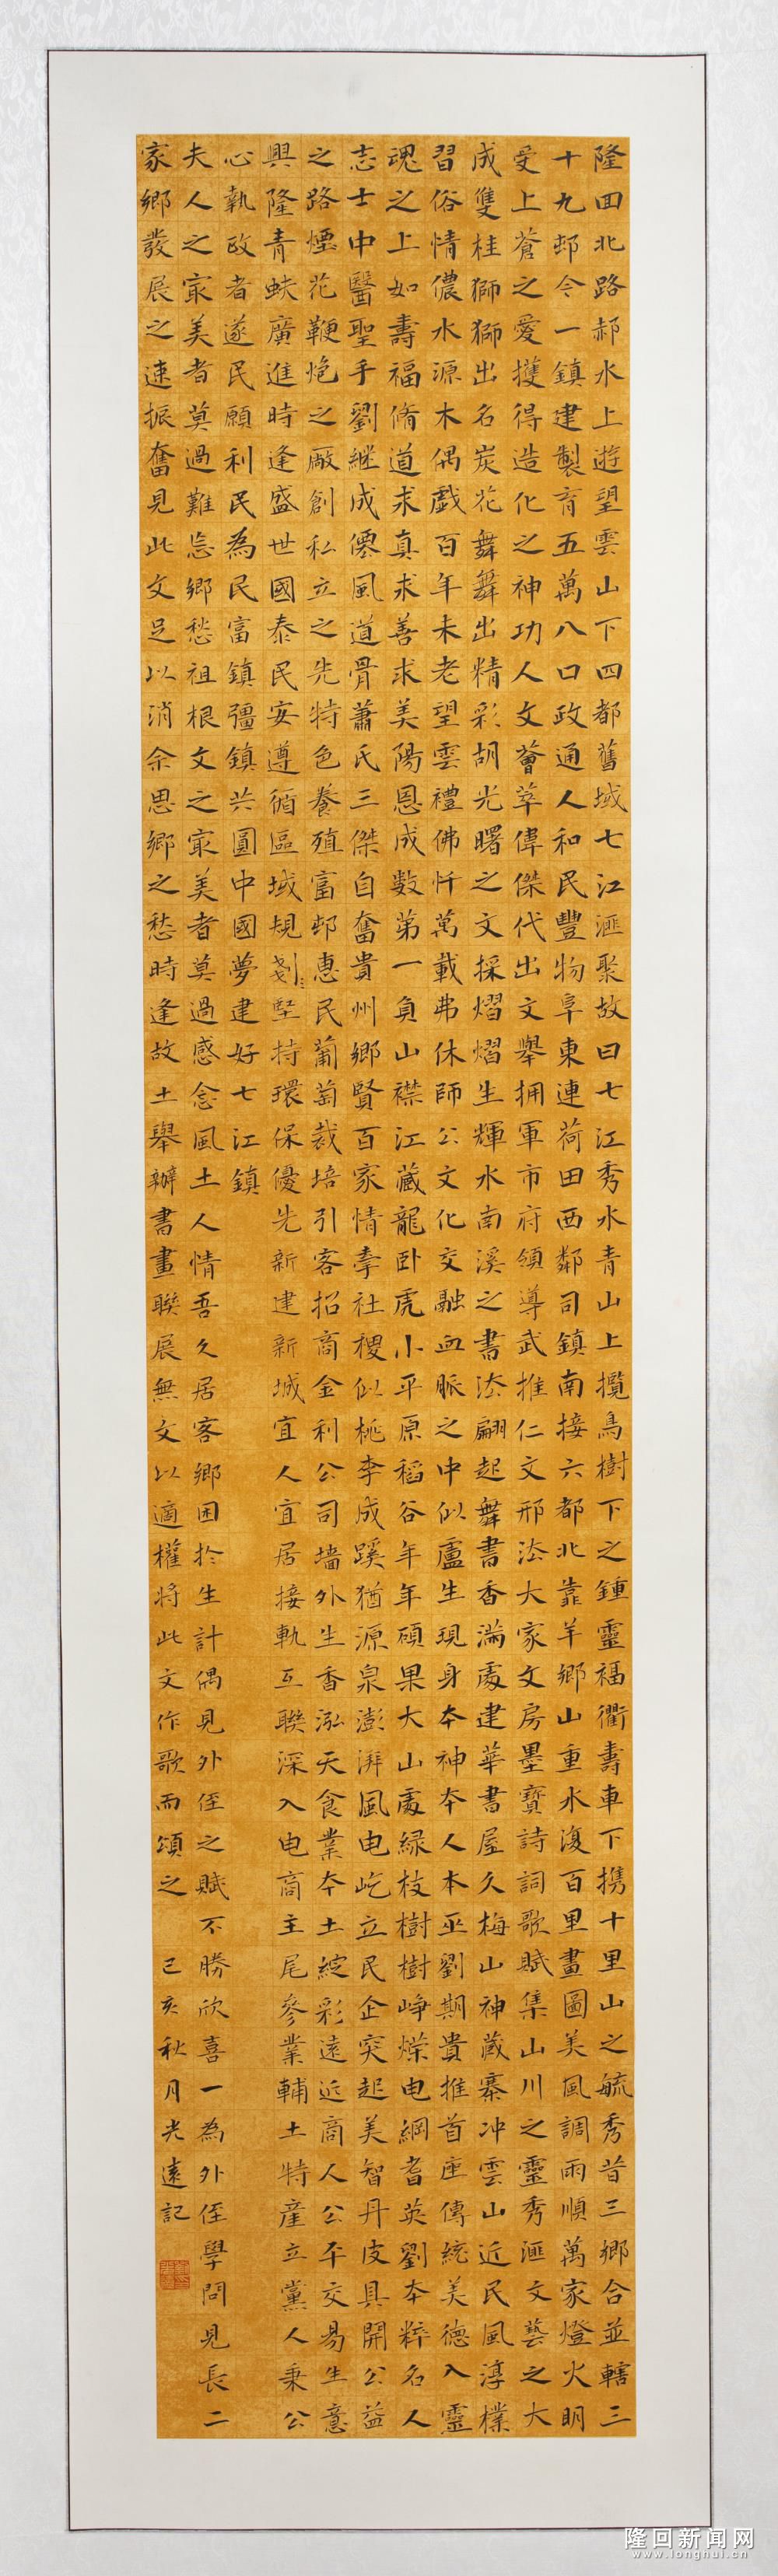 隆回北路郝水上遊望雲山下四都舊域七江滙聚故曰七江秀水青山上攬鳥樹下之鍾靈福衢壽車下携十里山之毓秀昔三鄉合並轄三
十九邨今一鎮建製育五萬八口政通人和民豐物阜東連荷田西鄰司鎮南接六都北靠羊鄉山重水復百里畫圖美風調雨順萬家燈火明
受上蒼之愛獲得造化之神功人文薈萃偉傑代出文舉拥軍市府領導武推仁文邢法大家文房墨寶詩詞歌賦集山川之靈秀滙文藝之大
成雙桂獅獅出名炭花舞舞出精彩胡光曙之文採熠熠生輝水南溪之書法翩起舞書香滿處建華書屋久梅山神藏寨冲雲山近民風淳樸
習俗情儂水源木偶戲百年未老望雲禮佛忏萬載弗休師公文化交融血脈之中似廬生現身本神本人本巫劉期貴推首座傳統美德入靈
魂之上如壽福脩道求真求善求美陽恩成数第一負山襟江藏龍卧虎小平原稻谷年年碩果大山處緑枝樹樹峥嶸电綱耆英劉本粹名人
志士中醫聖手劉継成僊風道骨蕭氏三傑自奮貴州鄉賢百家情牽社稷似桃李成蹊猶源泉澎湃風电屹立民企突起美智丹皮具開公益
之路煙花鞭炮之廠創私立之先特色養殖富邨惠民葡萄裁培引客招商金利公司墙外生香泓天食業本土綻彩遠近商人公平交易生意
興隆青蚨廣進時逢盛世國泰民安遵循區域規劃堅持環保優先新建新城宜人宜居接軌互聯深入电商主尾參業輔土特産立黨人秉公
心執政者遂民願利民為民富鎮彊鎮共圓中國夢建好七江鎮
夫人之冣美者莫過難忘鄉愁祖根文之冣美者莫過感念風土人情吾久居客鄉困於生計偶見外侄之賦不勝欣喜一為外侄學問見長二
家鄉發展之速振奮見此文足以消余思鄉之愁時逢故土舉辦書畫聯展無文以適權將此文作歌而頌之 己亥秋月光遠記
隆回新闻网
www.longhui.cn